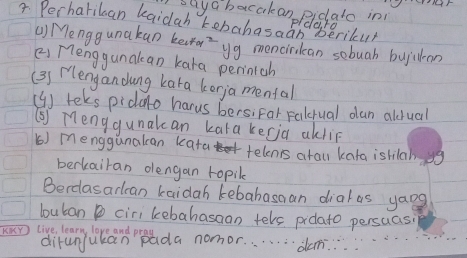 saya bacakan pidato ini
7. Perhatikan kaidah kebahasaan pidato berikut
(1) Menggunakan kata² yg mencirikan sebuah bujukan
(2) Menggunakan kata perintah
(3) Mengandung kata kerja mental
(4) teks pidato harus bersifat faktual dan aktual
(5) Menggunakan kata kerja aktif
(6) Menggunakan kata teknis atau kata istilah yg
berkaitan dengan topik
Berdasarkan kaidah kebahasaan diatas yang
bukan ciri kebahasaan teks pidato persuasif
KKY Live, learn, love and pray
ditunjukan pada nomor........ dan....